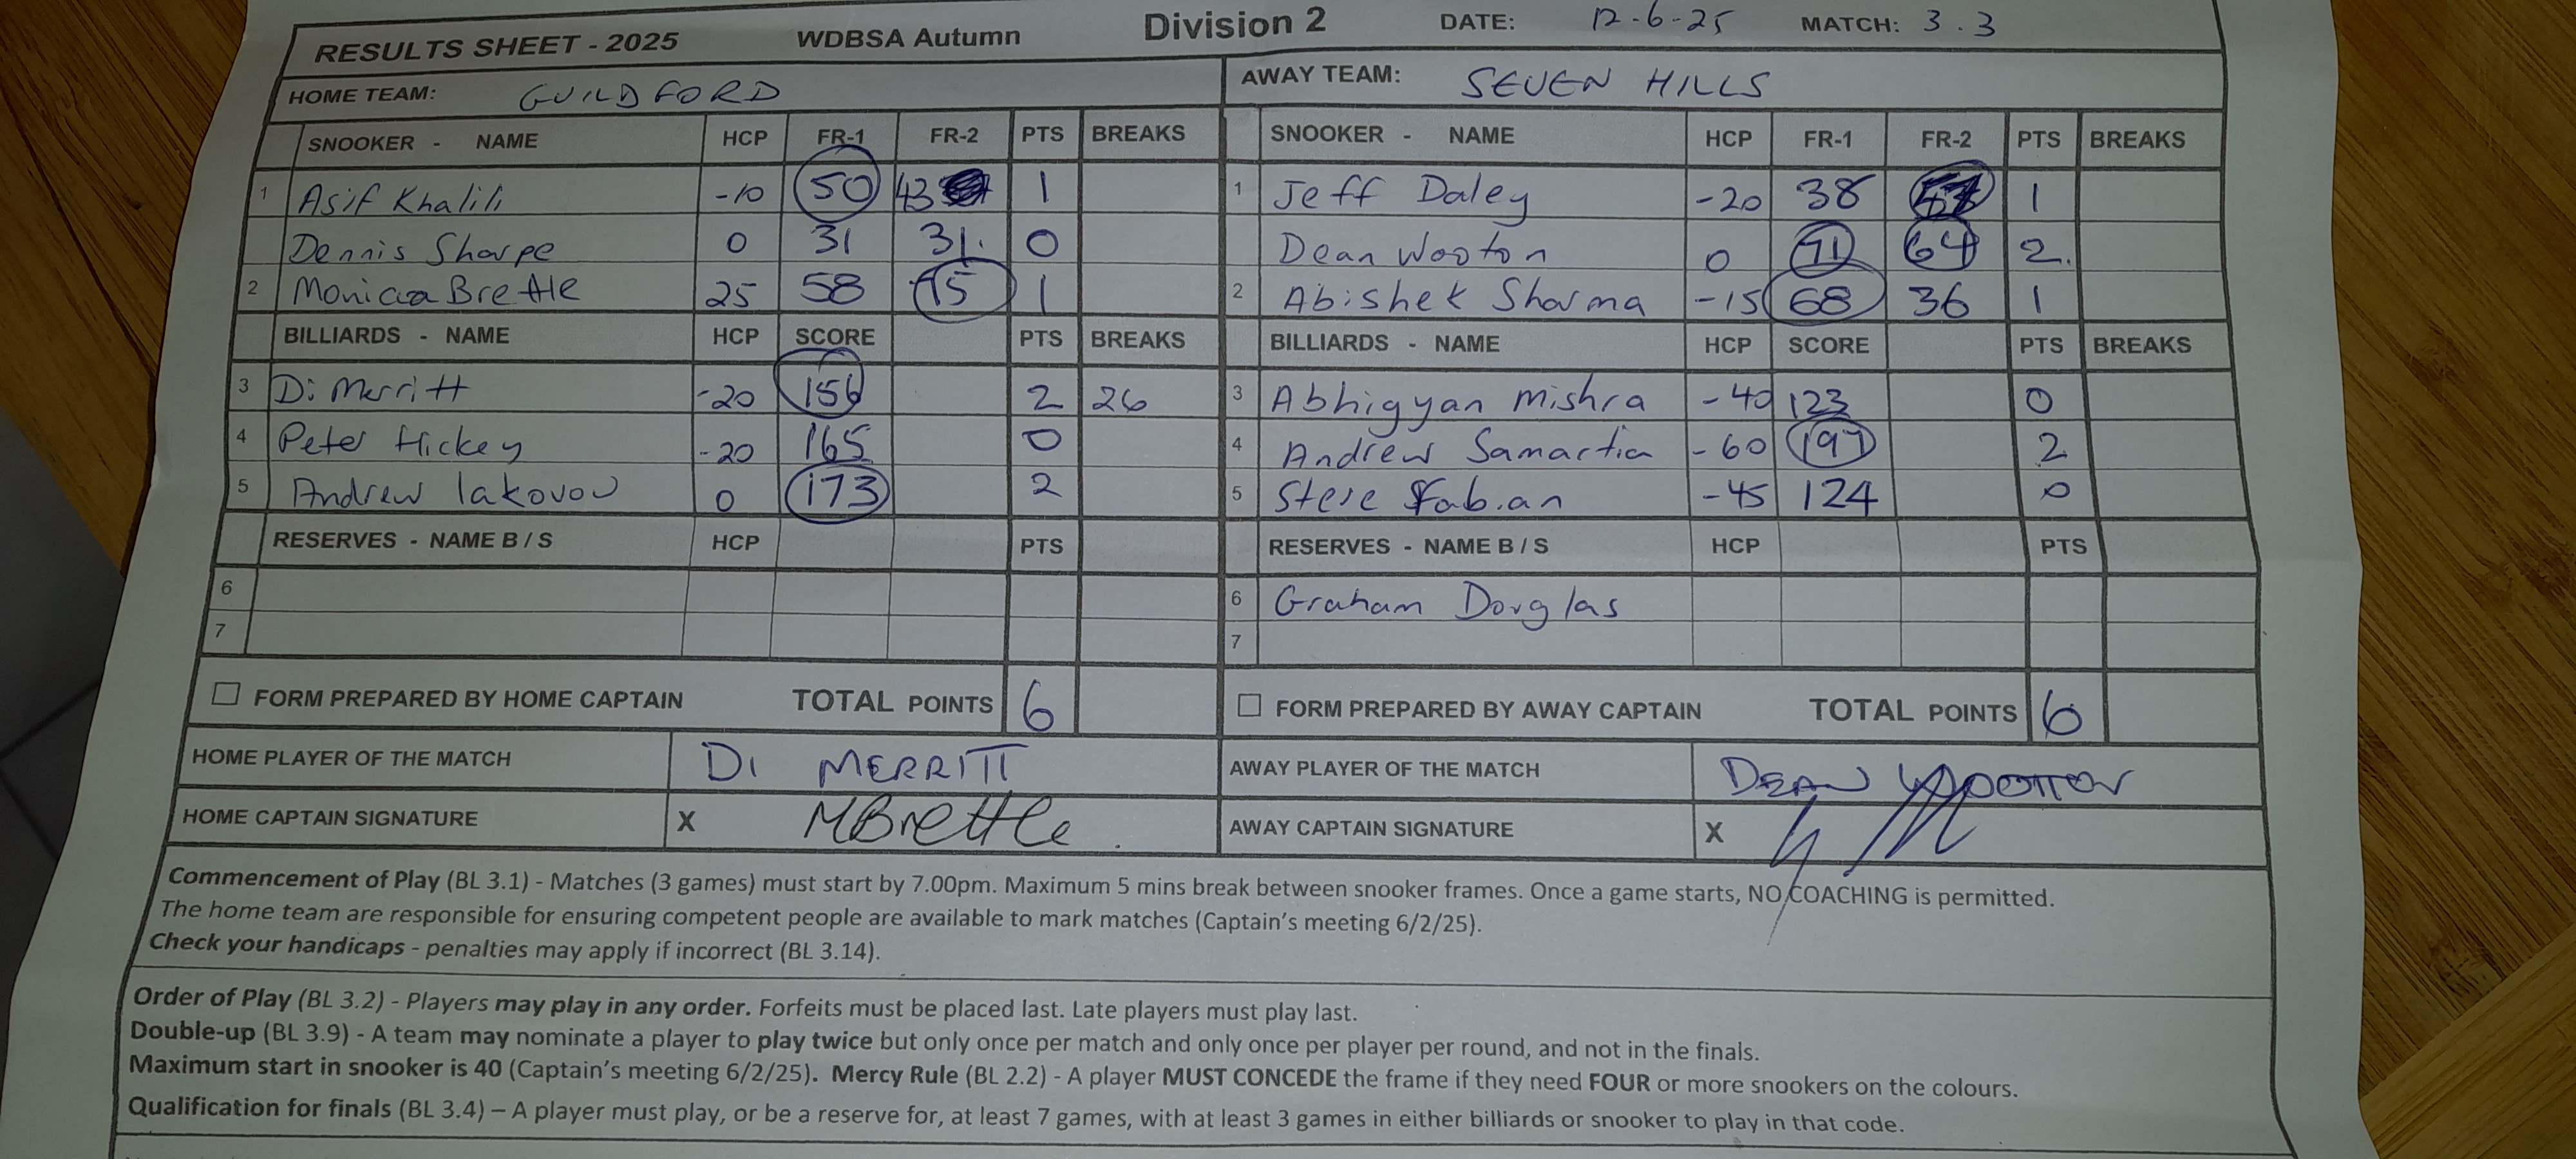 RESULTS SHEET - 2025 WDBSA Autumn Division 2 DATE: 12-6-25 MATCH: 3.3
HOME TEAM: GUILDFORD AWAY TEAM: SEVEN HILLS
SNOOKER - NAME HCP FR-1 FR-2 PTS BREAKS SNOOKER - NAME HCP FR-1 FR-2 PTS BREAKS
1 Asif Khalili -10 50 43 1 1 Jeff Daley -20 38 1
Dennis Sharpe 0 31 31. 0 Dean Wooton 0 71 64 2.
2 Monica Brettle 25 58 75 1 2 Abishek Sharma -15 68 36 1
BILLIARDS - NAME HCP SCORE PTS BREAKS BILLIARDS - NAME HCP SCORE PTS BREAKS
3 Di Merritt -20 156 2 26 3 Abhigyan Mishra -40 123 0
4 Peter Hickey -20 165 0 4 Andrew Samartin -60 197 2
5 Andrew Iakovou 0 173 2 5 Steve Fabian -45 124 0
RESERVES - NAME B / S HCP PTS RESERVES - NAME B / S HCP PTS
6 6 Graham Douglas
7 7
FORM PREPARED BY HOME CAPTAIN TOTAL POINTS 6 FORM PREPARED BY AWAY CAPTAIN TOTAL POINTS 6
HOME PLAYER OF THE MATCH DI MERRITT AWAY PLAYER OF THE MATCH DEAN WOOTTON
HOME CAPTAIN SIGNATURE X MBrettle. AWAY CAPTAIN SIGNATURE X
Commencement of Play (BL 3.1) - Matches (3 games) must start by 7.00pm. Maximum 5 mins break between snooker frames. Once a game starts, NO COACHING is permitted.
The home team are responsible for ensuring competent people are available to mark matches (Captain's meeting 6/2/25).
Check your handicaps - penalties may apply if incorrect (BL 3.14).
Order of Play (BL 3.2) - Players may play in any order. Forfeits must be placed last. Late players must play last.
Double-up (BL 3.9) - A team may nominate a player to play twice but only once per match and only once per player per round, and not in the finals.
Maximum start in snooker is 40 (Captain's meeting 6/2/25). Mercy Rule (BL 2.2) - A player MUST CONCEDE the frame if they need FOUR or more snookers on the colours.
Qualification for finals (BL 3.4) – A player must play, or be a reserve for, at least 7 games, with at least 3 games in either billiards or snooker to play in that code.